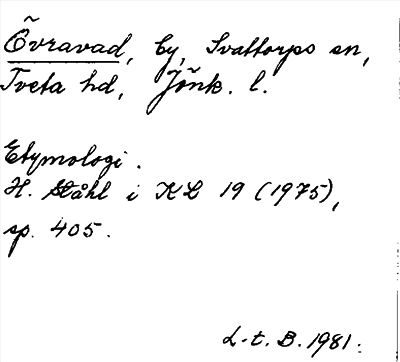 Övravad, by, Svattorps sn,
Tveta hd, Jönk. l.
Etymologi.
H. Ståhl i KL 19 (1975),
sp. 405.
L-t. B. 1981.